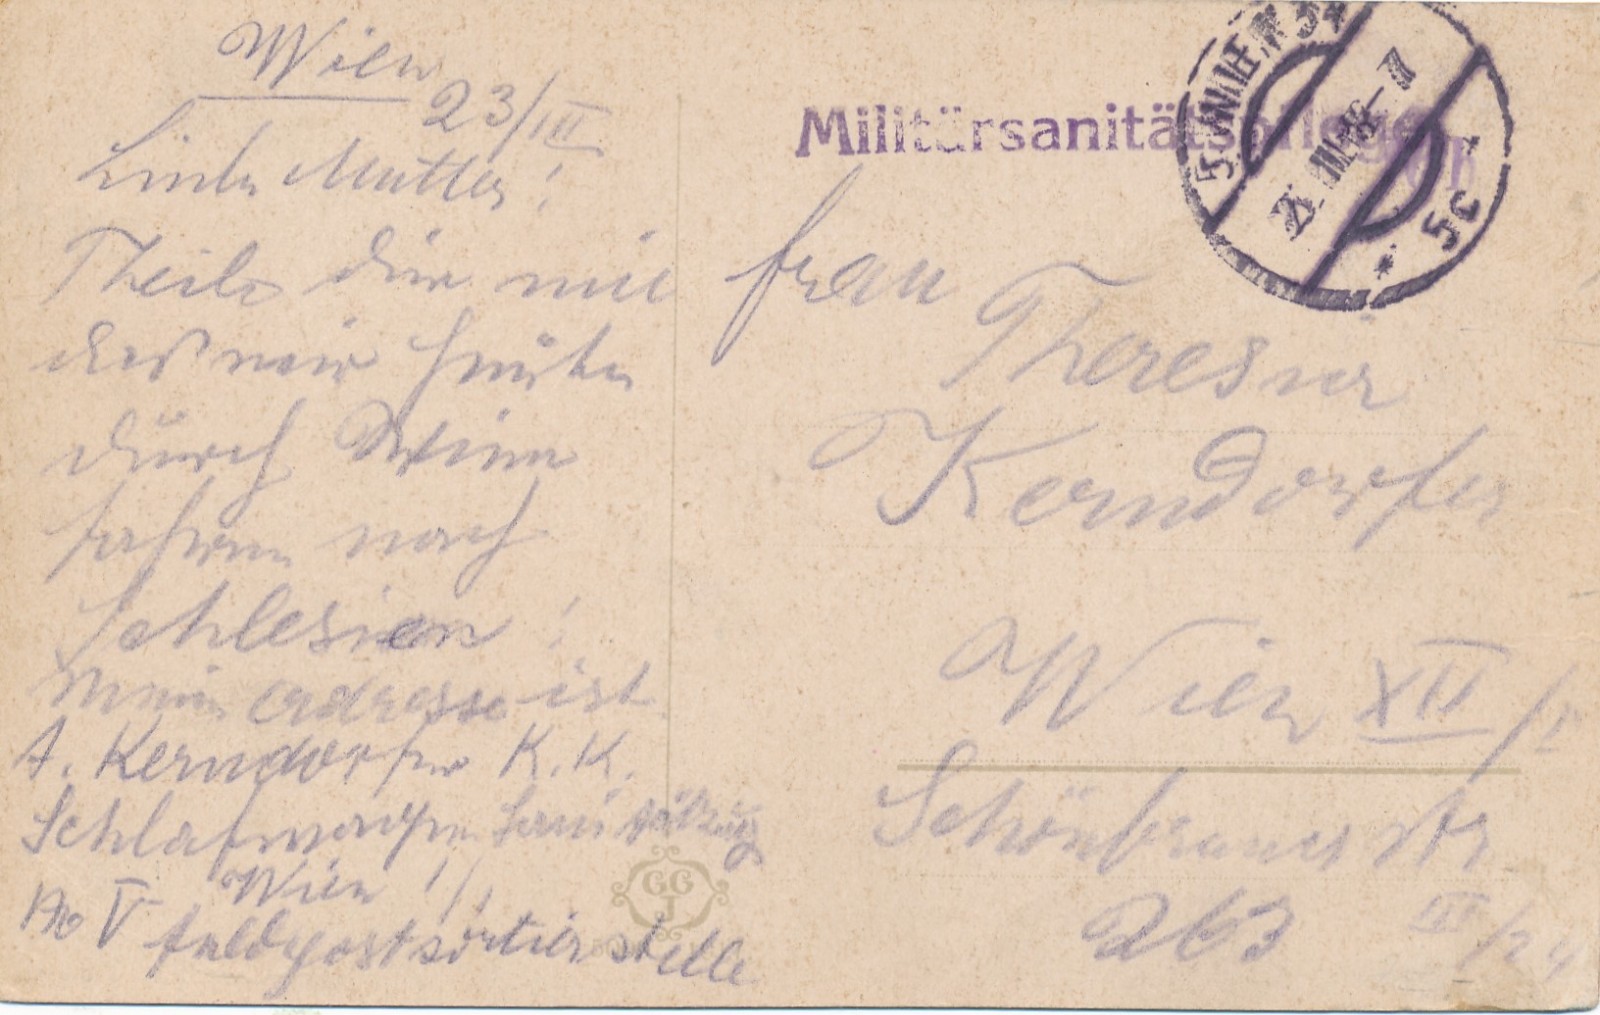 Wien
23/III
Liebe Mutter!
Theile dir mit
das wir heute
durch Wien
fahren nach
Schlesien!
Meine adresse ist
A. Kerndorfer K. K.
Schlafwagen Sanitätszug
Wien 1/1
No V Feldpostsortierstelle
Militärsanitätspflege
5 WIEN
III 18-7
5c
Frau
Theresia
Kerndorfer
Wien XII/1
Schönbrunerstr
263 III/24
GGJ